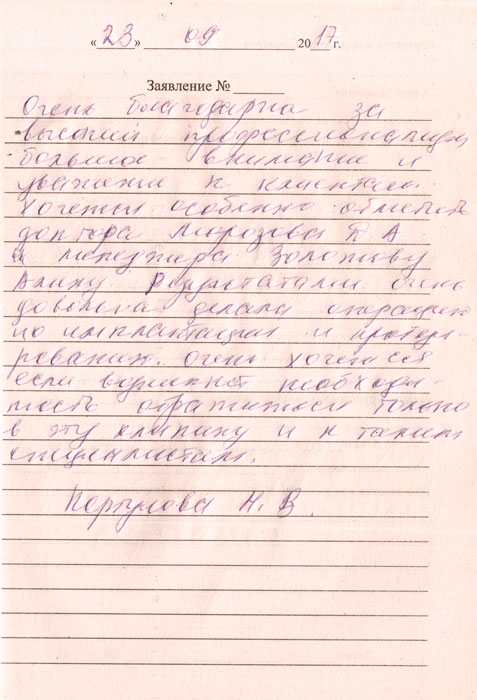 «23» 09 2017 г.
Заявление №
Очень благодарна за
высокий профессионализм
большое внимание и
уважение к клиентам.
Хочется особенно отметить
доктора Мирзоева А
и менеджера Золотову
Алину Результатами очень
довольна делала операцию
по имплантации и протези-
рования. Очень хочется
если возникнет необходи-
мость обратиться только
в эту клинику и к таким
специалистам.
Н. В.